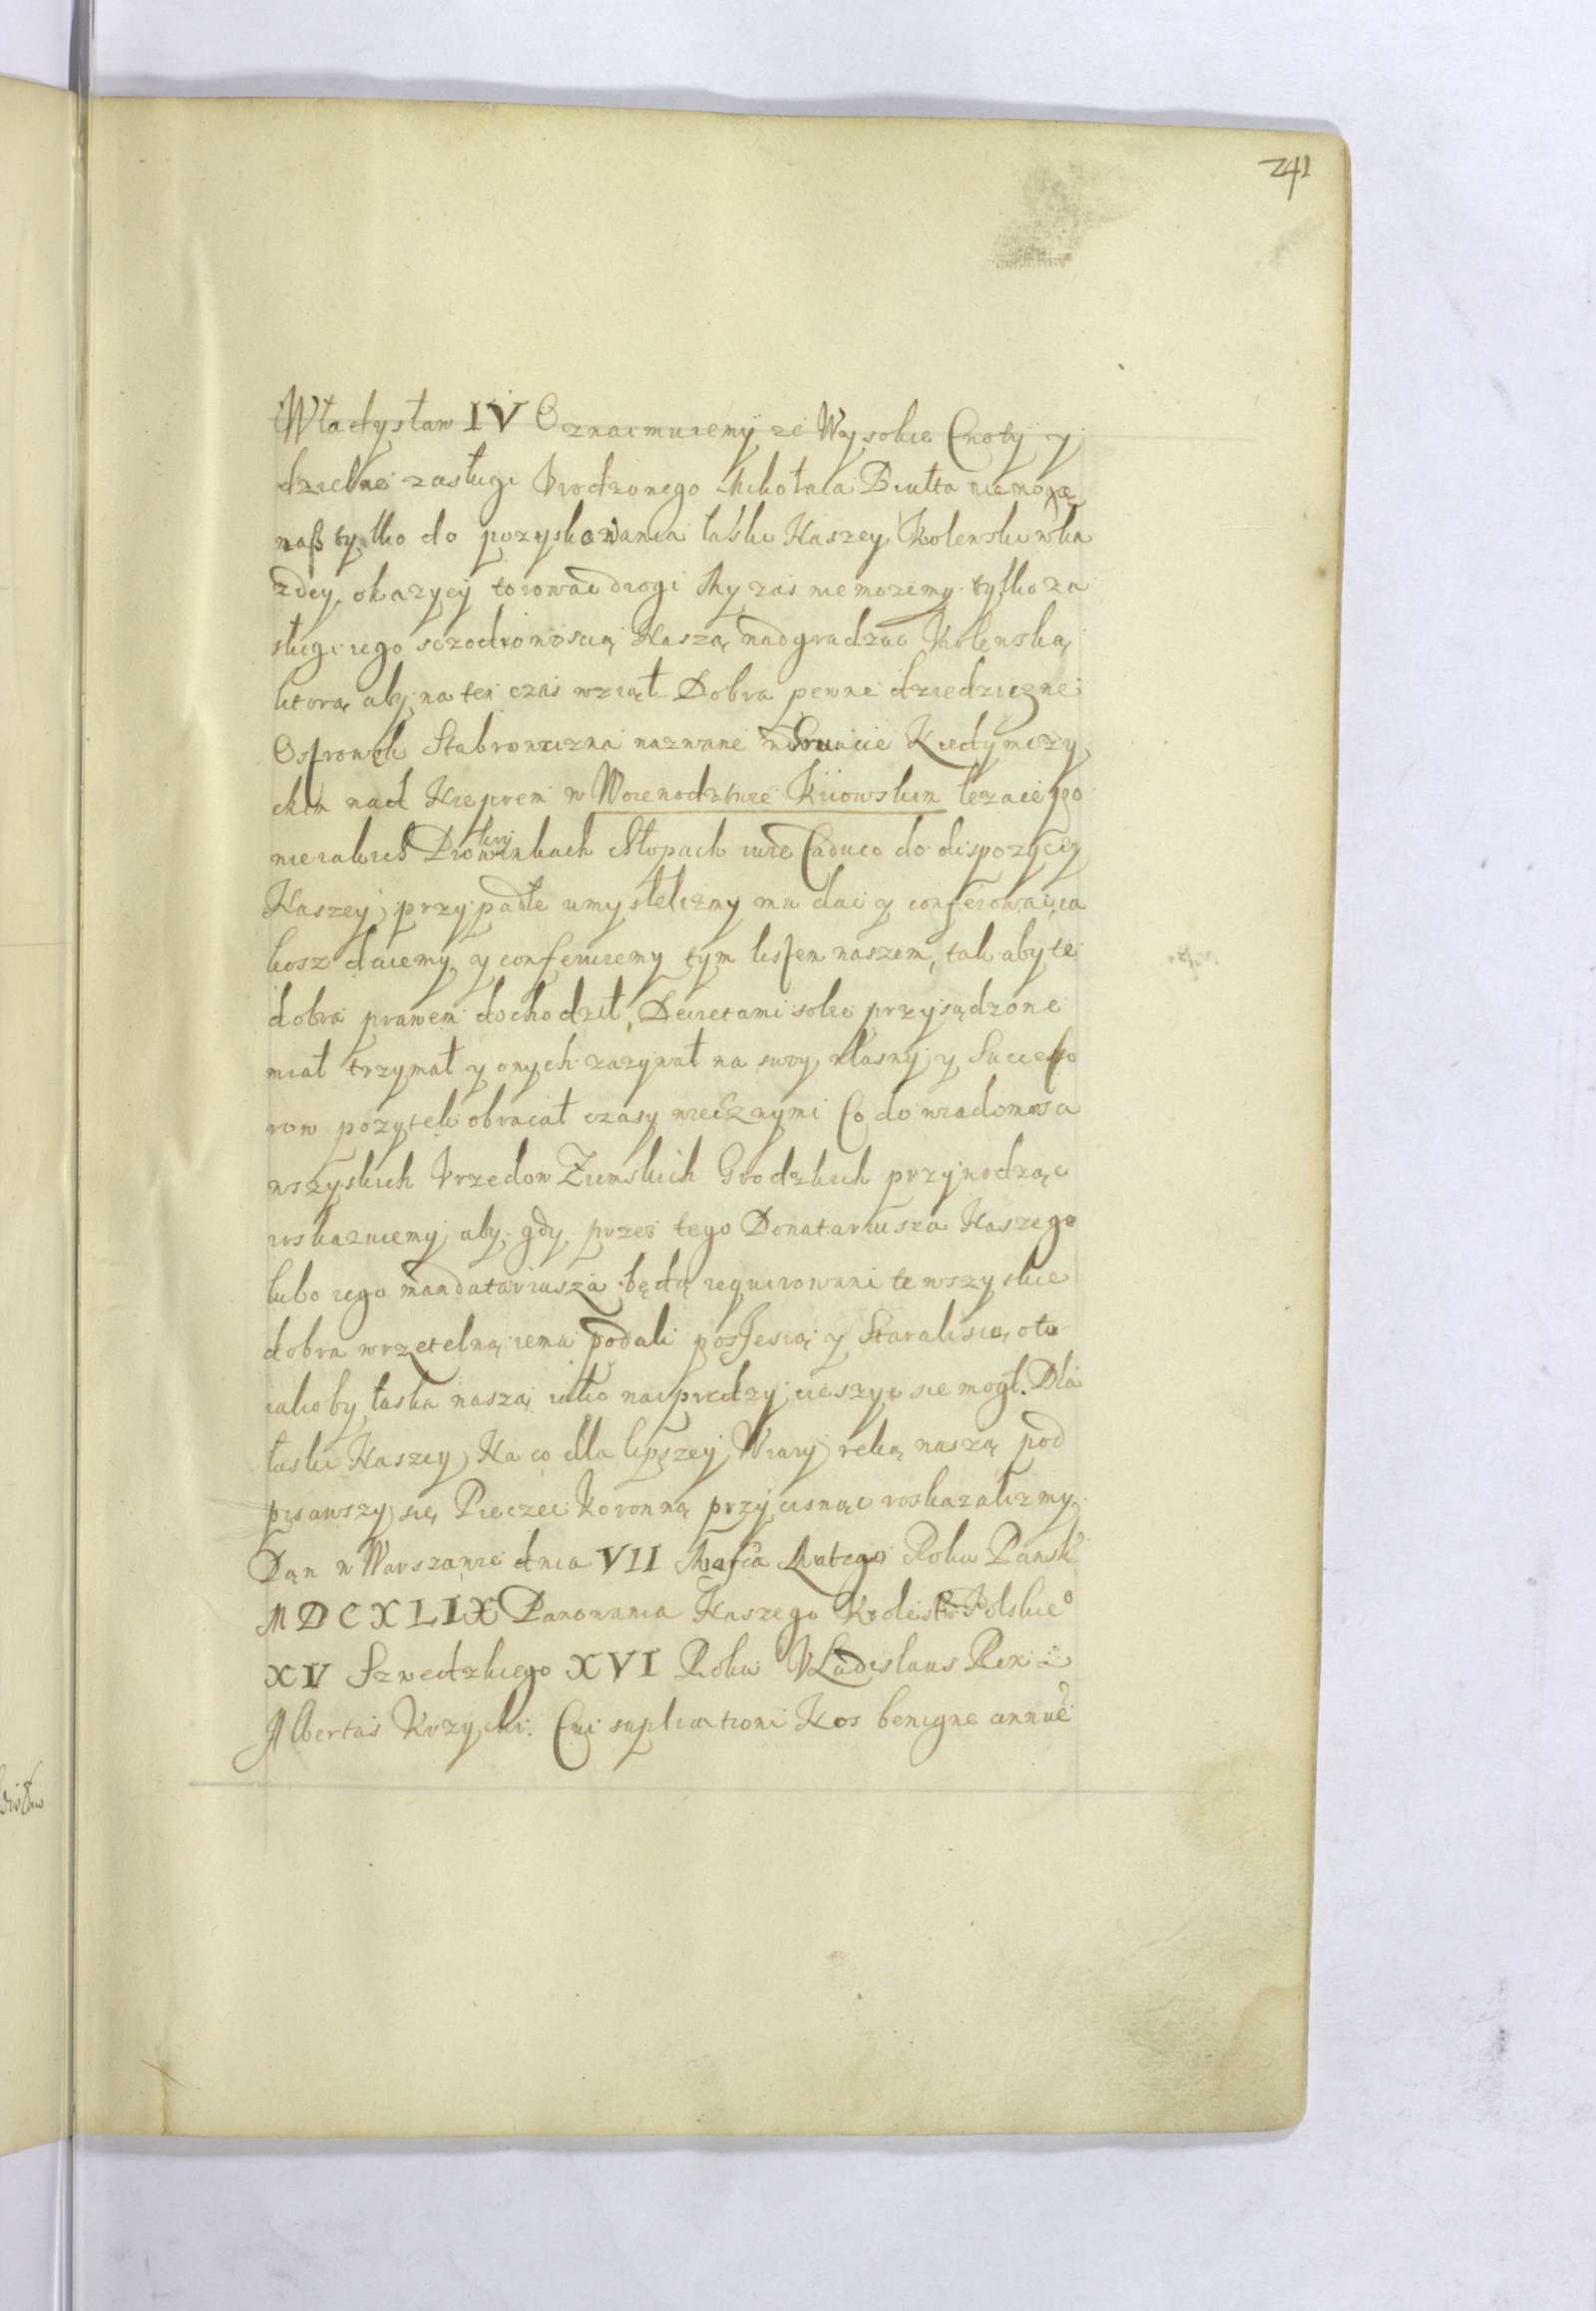 241
Władysław IV Oznaimuiemy ze Wysokie Cnoty y
dzielne zasługi Vrodzonego Mikołaia Biułta niemogą
nasz tylko do pozyskowania łaski Naszey Kolewskiwka
zdey okazyey torowac drogi My zas niemozemy tylko za
sługi iego sczodrowoscią Naszą nadgradzac Krolewską
ktorą aby na ten czas wziął Dobra pewne dziedziczne
Ostrowek Stabrowizna nazwane w Gruncie Kiedymczy
ckim nad Nieprem w Woiewodztwie Kiiowskim lezace po
nieiakichs chłopach iure Caduco do dispozycij
Naszey przypadłe umysleliżmy mu dac y conferowaiia
kosz daiemy y conferuiemy tym listem naszem, tak aby te
dobra prawem dochodził, Decretami sobie przysądzone
miał trzymał y onych zazywał na swoy własny y Successo
row pozytek obracał czasy wiecznymi Co do wiadomosci
wszyskich Vrzedow Ziemskich Grodzkich przywodząc
roskazuiemy aby gdy przez tego Donatariusza Naszego
lubo iego mandatariusza będą requirowani te wszyskie
dobra wrzetelną iemu podali possesią y Staralisię oto
iakoby łaską naszą iako nayprędzy cieszyc sie mogł. Dla
łaski Naszey Na co dla lepszey Wiary ręką naszą pod
pisawszy się Pieczęc Koronną przycisnąc roskazalizmy
Dan w Warszawie dnia VII Mssca Lutego Roku Pansk
MDCXLIX Panowania Naszego Krolestw Polskieo
XV Szwedzkiego XVI Roku VLadislaus Rex
Albertus Krzycki. Cui suplicationi Nos benigne annue